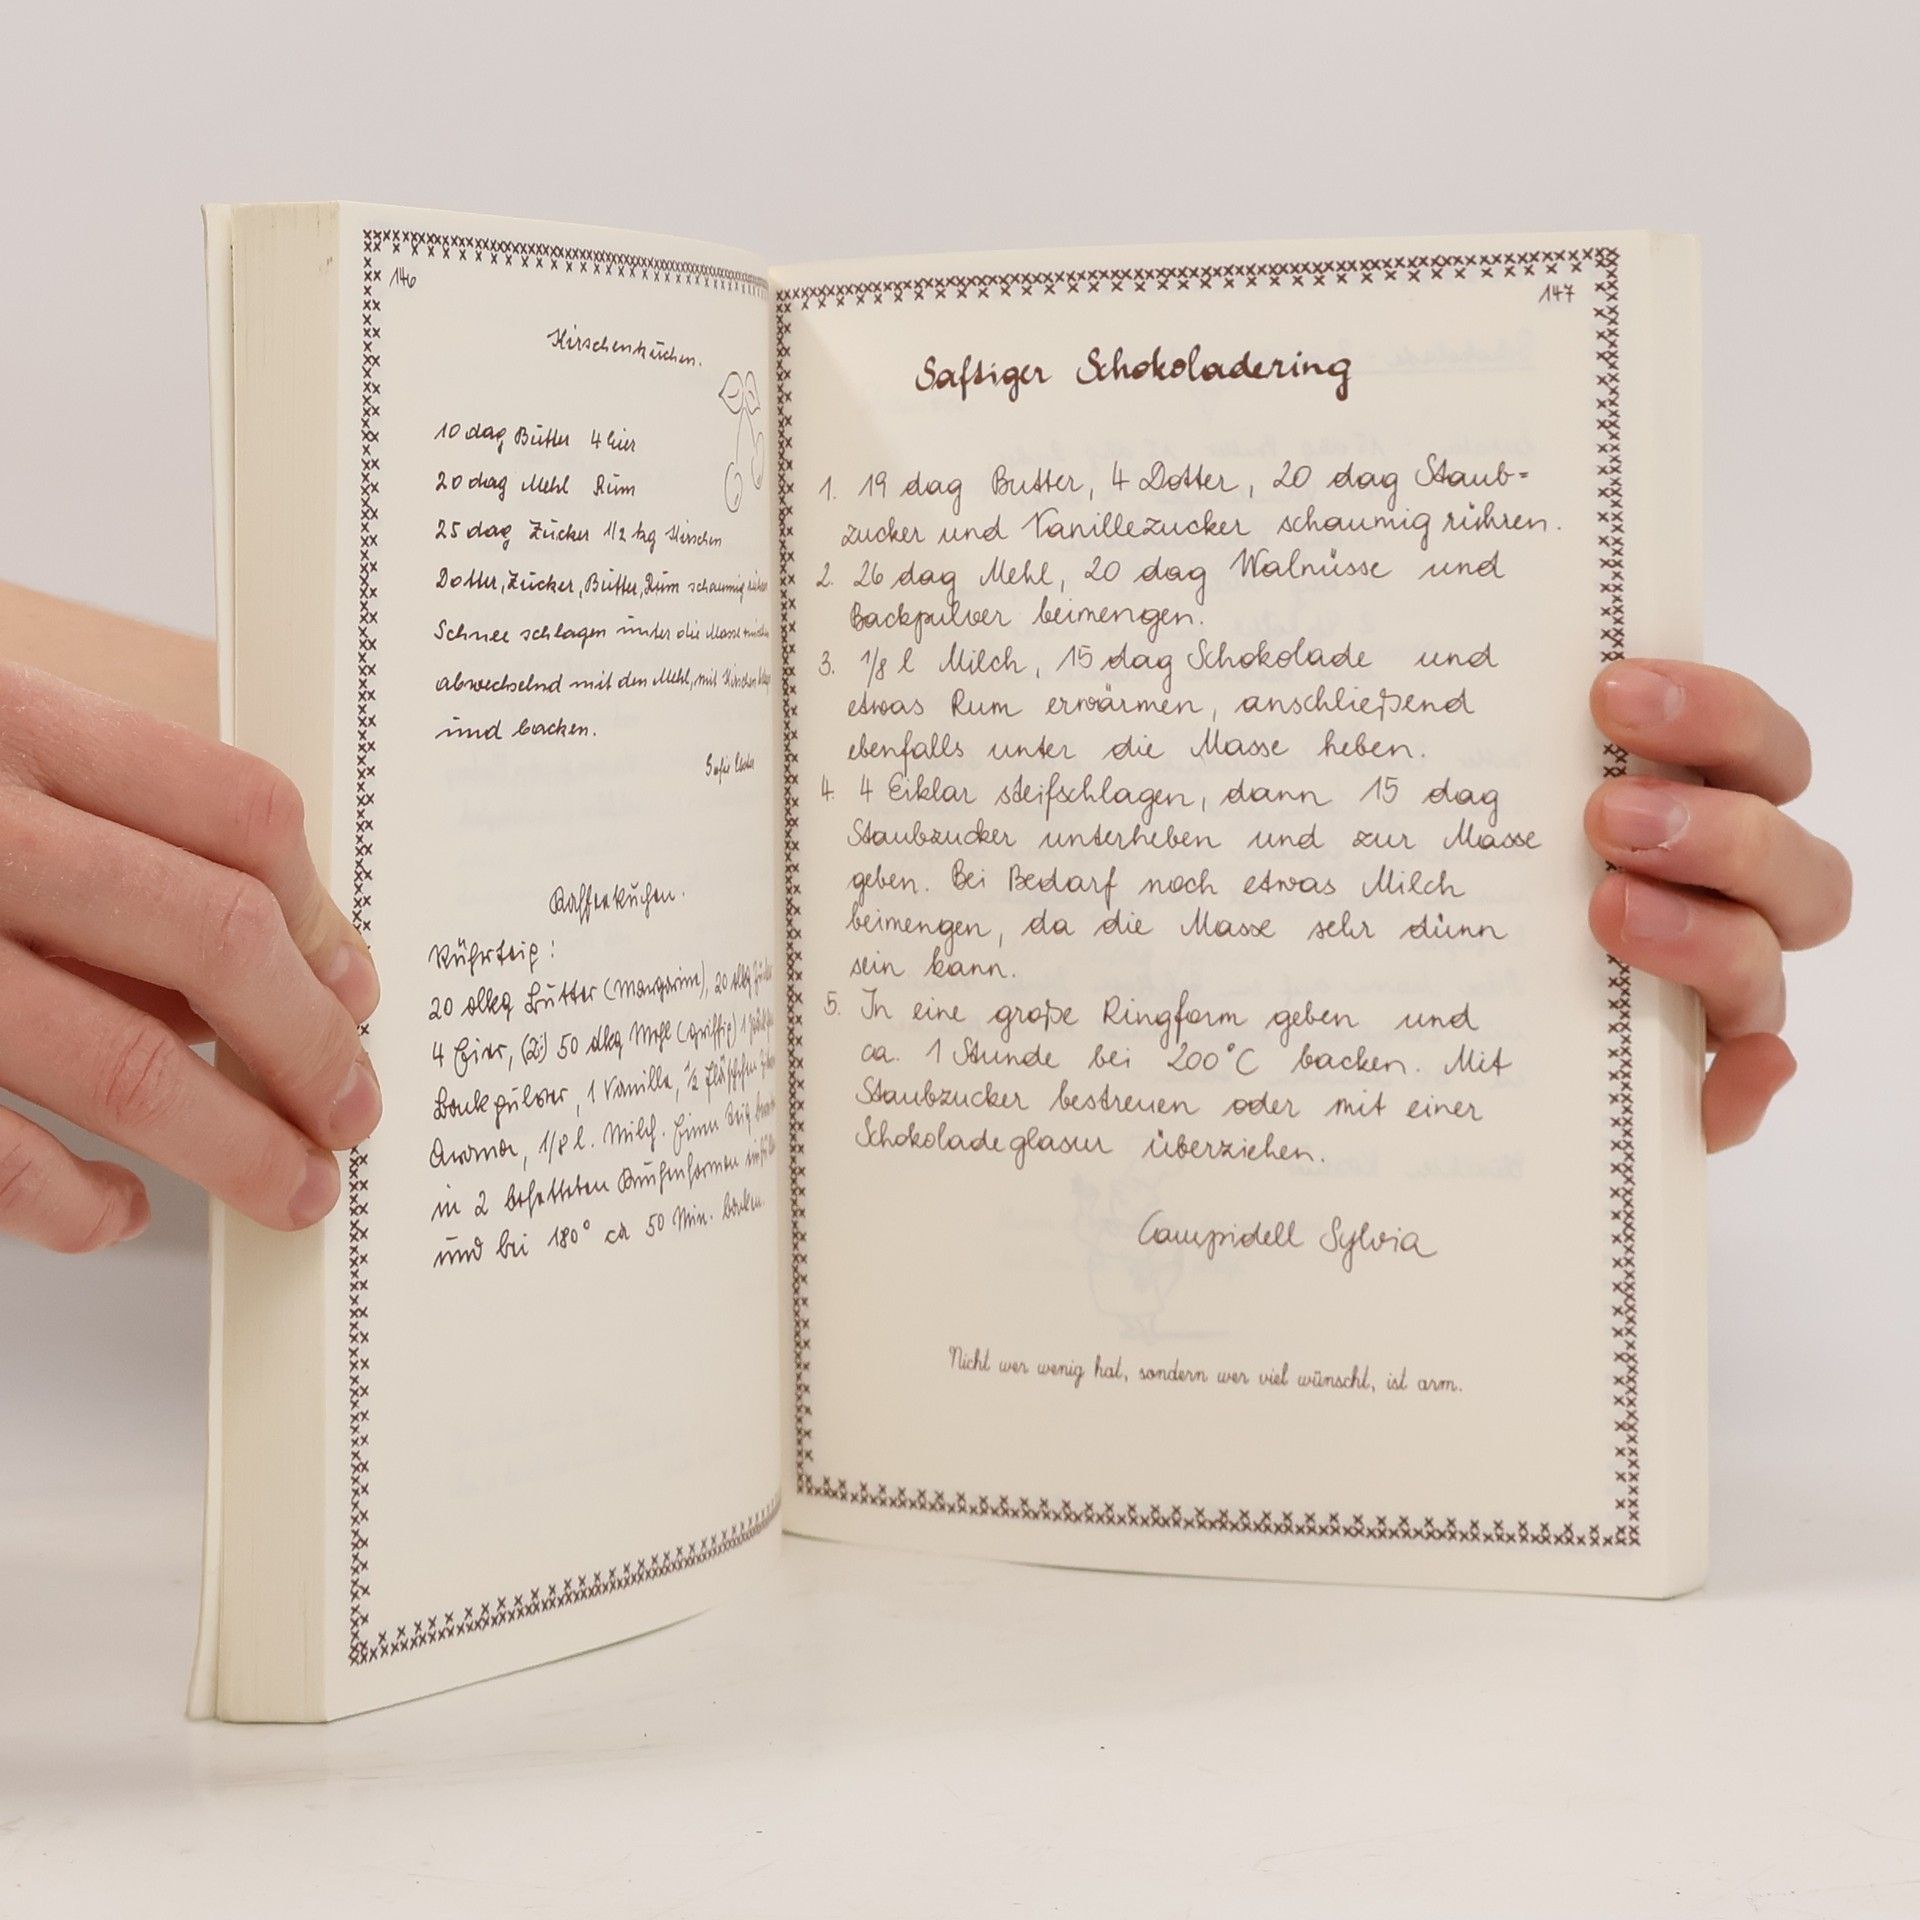 146
Kirschenkuchen.
10 dag Butter 4 Eier
20 dag Mehl Rum
25 dag Zucker 1/2 kg Kirschen
Dotter, Zucker, Butter, Rum schaumig
Schnee schlagen unter die Masse
abwechselnd mit den Mehl, mit Kirschen
und backen.
Kaffeekuchen.
Rührteig:
20 dkg Butter (Margarine), 20 dkg
4 Eier, 50 dkg Mehl (griffig) 1
Backpulver, 1 Vanille, 1/2 Fläschchen
Aroma, 1/8 l. Milch. Einen Teig
in 2 befetteten Kuchenformen
und bei 180° ca 50 Min. backen.
147
Saftiger Schokoladering
1. 19 dag Butter, 4 Dotter, 20 dag Staub=
zucker und Vanillezucker schaumig rühren.
2. 26 dag Mehl, 20 dag Walnüsse und
Backpulver beimengen.
3. 1/8 l Milch, 15 dag Schokolade und
etwas Rum erwärmen, anschließend
ebenfalls unter die Masse heben.
4. 4 Eiklar steifschlagen, dann 15 dag
Staubzucker unterheben und zur Masse
geben. Bei Bedarf noch etwas Milch
beimengen, da die Masse sehr dünn
sein kann.
5. In eine große Ringform geben und
ca. 1 Stunde bei 200°C backen. Mit
Staubzucker bestreuen oder mit einer
Schokoladeglasur überziehen.
Campidell Sylvia
Nicht wer wenig hat, sondern wer viel wünscht, ist arm.